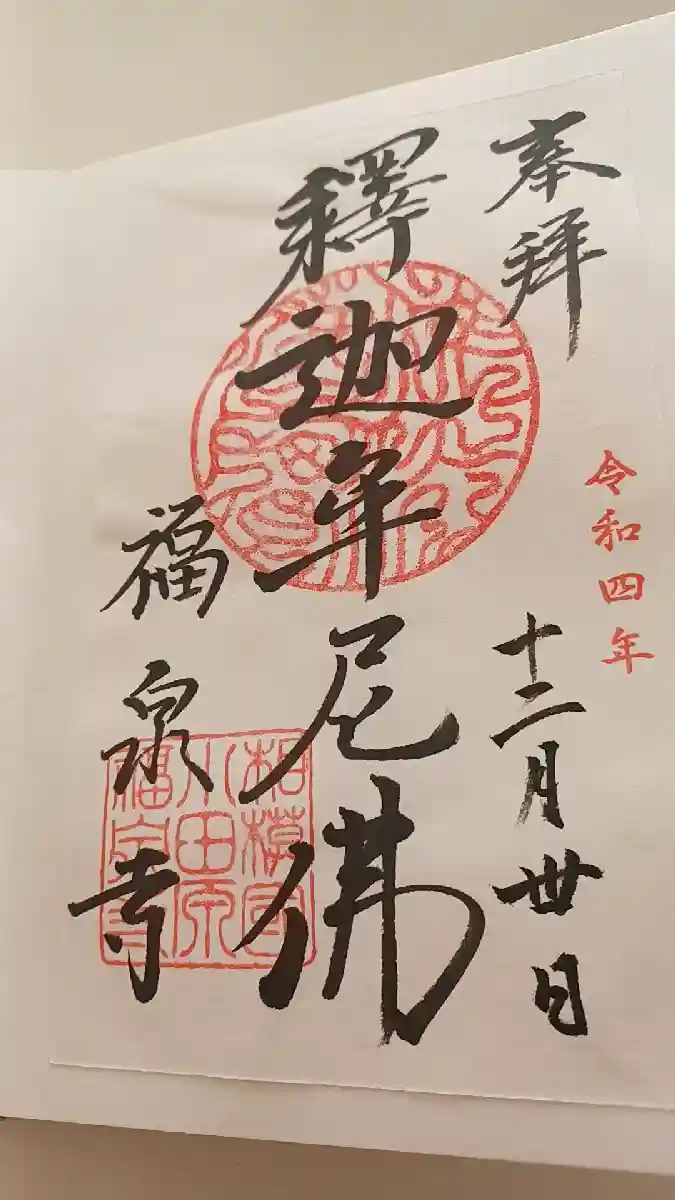 奉拝
令和四年
十二月丗日
釋迦牟尼佛
福泉寺
相模國
小田原
福泉寺